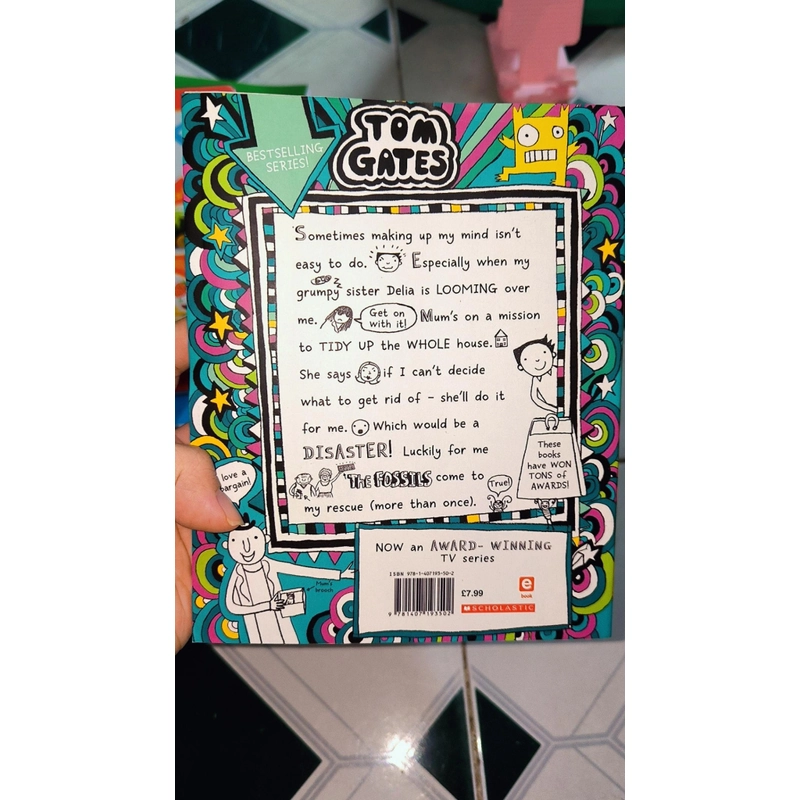 BESTSELLING
SERIES!
TOM
GATES
Sometimes making up my mind isn't
easy to do. Especially when my
grumpy sister Delia is LOOMING over
me. Get on with it! Mum's on a mission
to TIDY UP the WHOLE house.
She says if I can't decide
what to get rid of - she'll do it
for me. Which would be a
DISASTER! Luckily for me
THE FOSSILS come to
my rescue (more than once).
True!
These
books
have WON
TONS of
AWARDS!
love a
bargain!
Mum's
brooch
NOW an AWARD-WINNING
TV series
ISBN 978-1-407193-50-2
9 781407 193502
£7.99
e
book
SCHOLASTIC